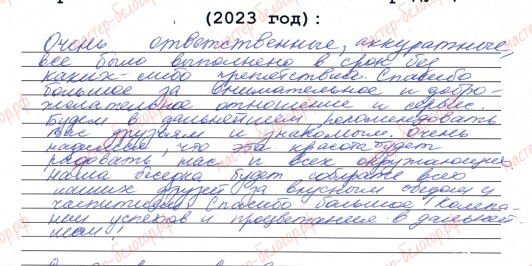 (2023 год):
Очень ответственные, аккуратные,
все было выполнено в срок без
каких-либо препятствий. Спасибо
большое за внимательное и добро-
желательное отношение и сервис.
Будем в дальнейшем рекомендовать
Вас друзьям и знакомым. Очень
надеемся, что эта красота будет
радовать нас и всех окружающих,
наша беседка будет собирать всех
наших друзей за вкусным обедом и
чаепитием. Спасибо большое! Жела-
ем успехов и процветания в дальней-
шем!